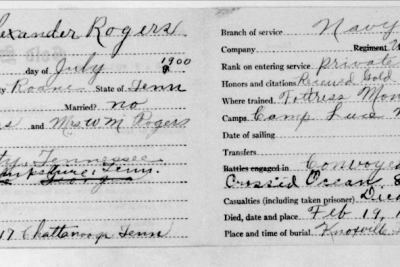 exander Rogers
day of July 1900
Roane State of Tenn
Married? no
and Mrs W M Rogers
Tennessee
Tenn.
17 Chattanooga Tenn
Branch of service Navy
Company Regiment
Rank on entering service private
Honors and citations Received Gold
Where trained Fortress Mon
Camps Camp Lee
Date of sailing
Transfers
Battles engaged in Convoyed
Crossed Ocean 8
Casualties (including taken prisoner) Died
Died, date and place Feb 19, 1
Place and time of burial Knoxville